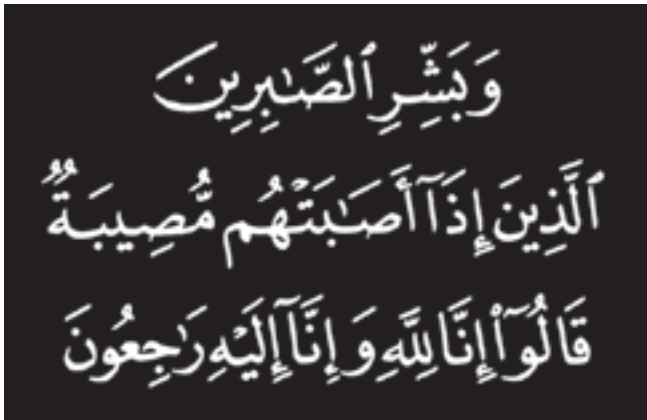 وَبَشِّرِ ٱلصَّٰبِرِينَ
ٱلَّذِينَ إِذَآ أَصَٰبَتۡهُم مُّصِيبَةٞ
قَالُوٓاْ إِنَّا لِلَّهِ وَإِنَّآ إِلَيۡهِ رَٰجِعُونَ